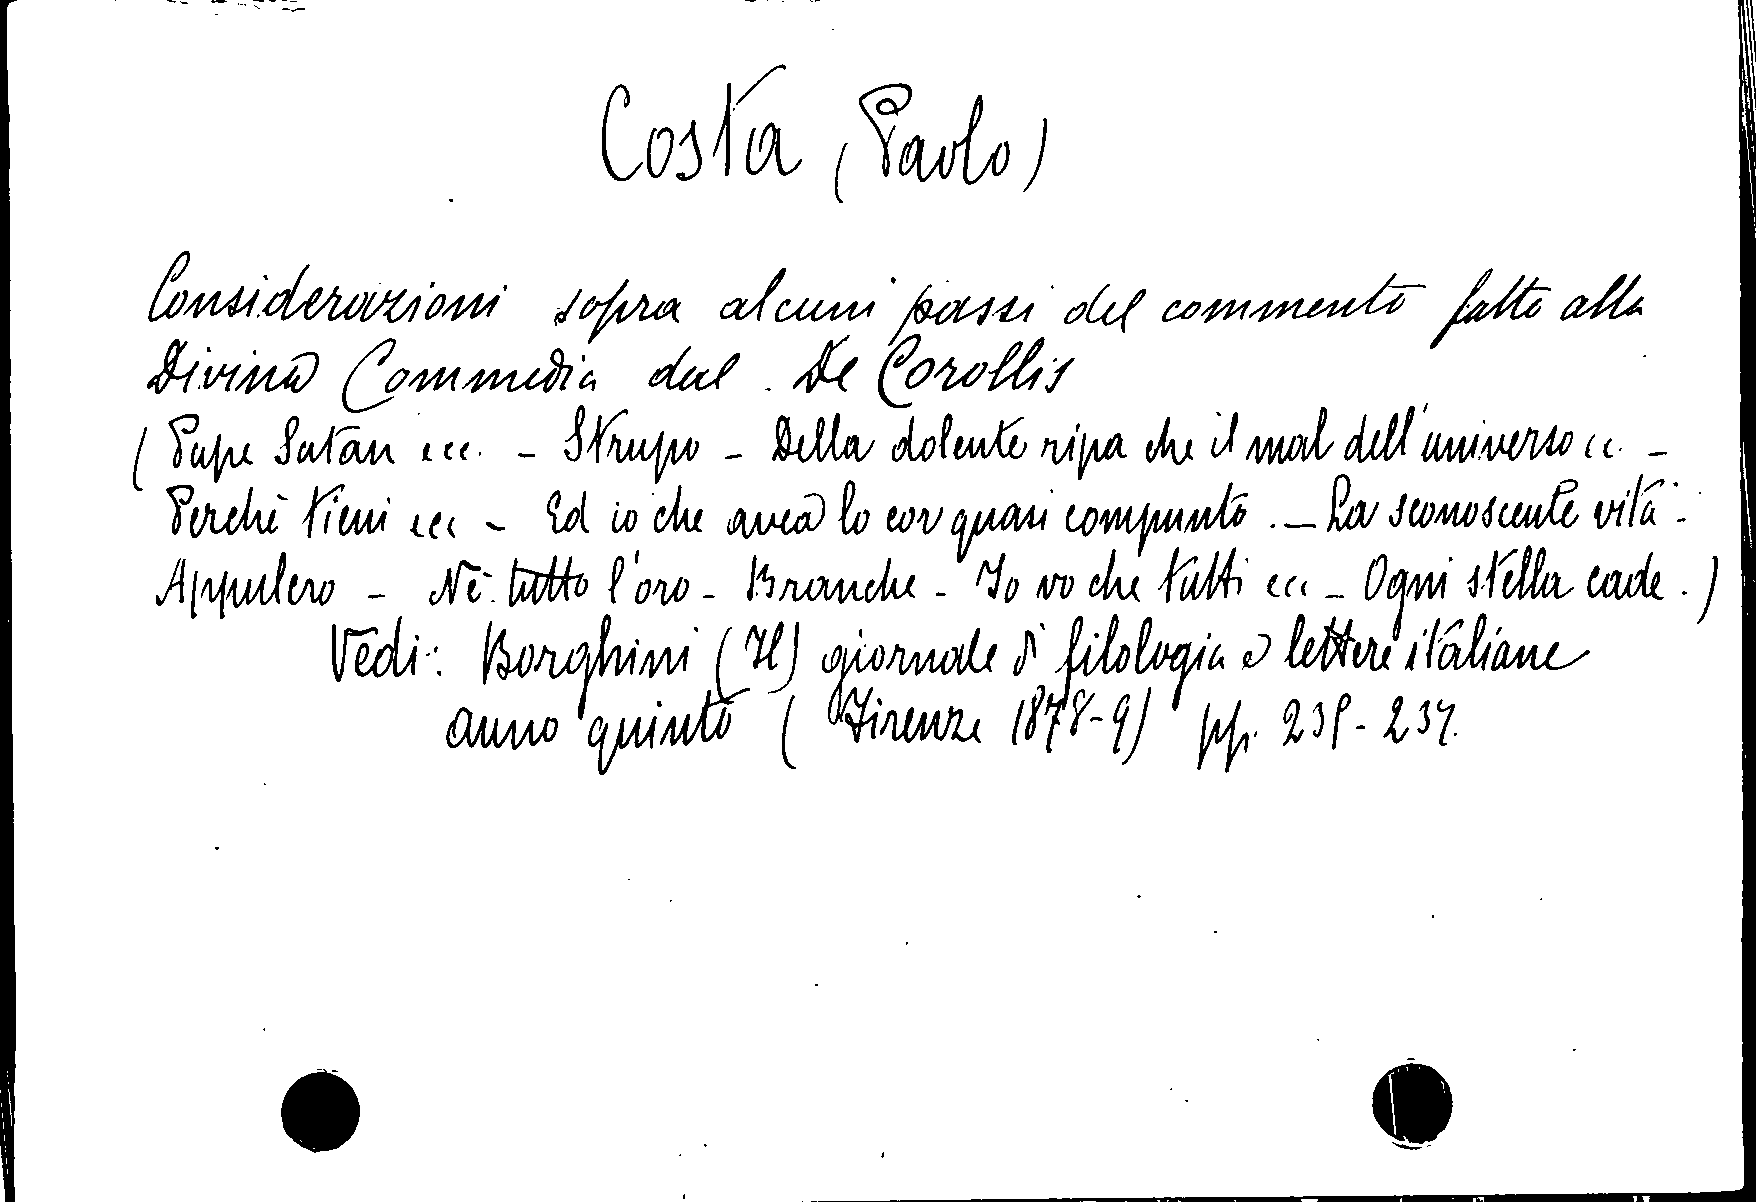 Costa (Paolo)
Considerazioni sopra alcuni passi del commento fatto alla
Divina Commedia dal De Corollis
(Pape Satan ecc. - Strupo - Della dolente ripa che il mal dell'universo cc. -
Perchè tieni ecc - Ed io che avea lo cor quasi compunto. - La sconoscente vita -
Appulcro - Nè tutto l'oro - Branche - Io vo che tutti ecc - Ogni stella cade.)
Vedi: Borghini (Il) giornale di filologia e lettere italiane
anno quinto (Firenze 1878-9) pp.